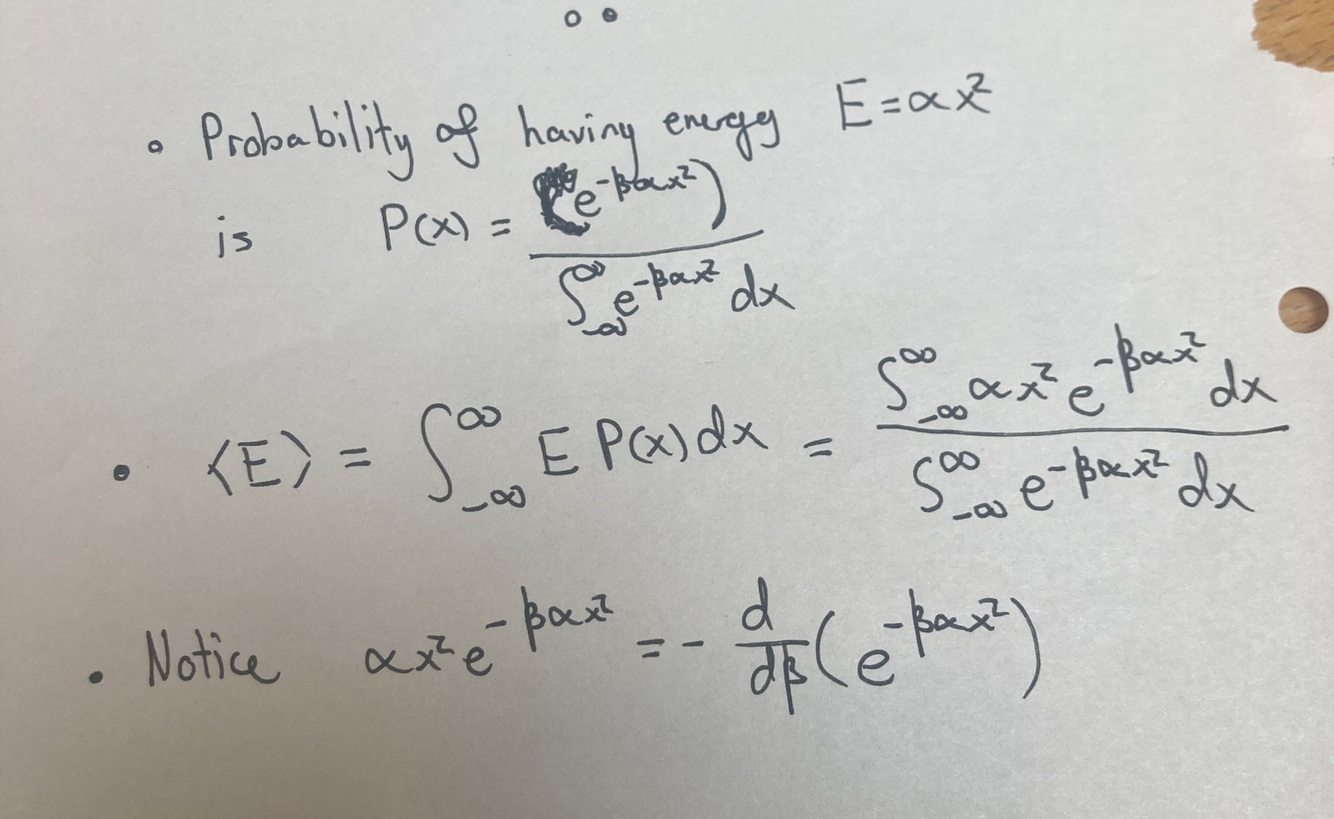 • Probability of having energy E = αx²
is P(x) = (e^{-βαx²}) / ∫_{-∞}^{∞} e^{-βαx²} dx
• ⟨E⟩ = ∫_{-∞}^{∞} E P(x) dx = ∫_{-∞}^{∞} αx² e^{-βαx²} dx / ∫_{-∞}^{∞} e^{-βαx²} dx
• Notice αx² e^{-βαx²} = - d/dβ (e^{-βαx²})